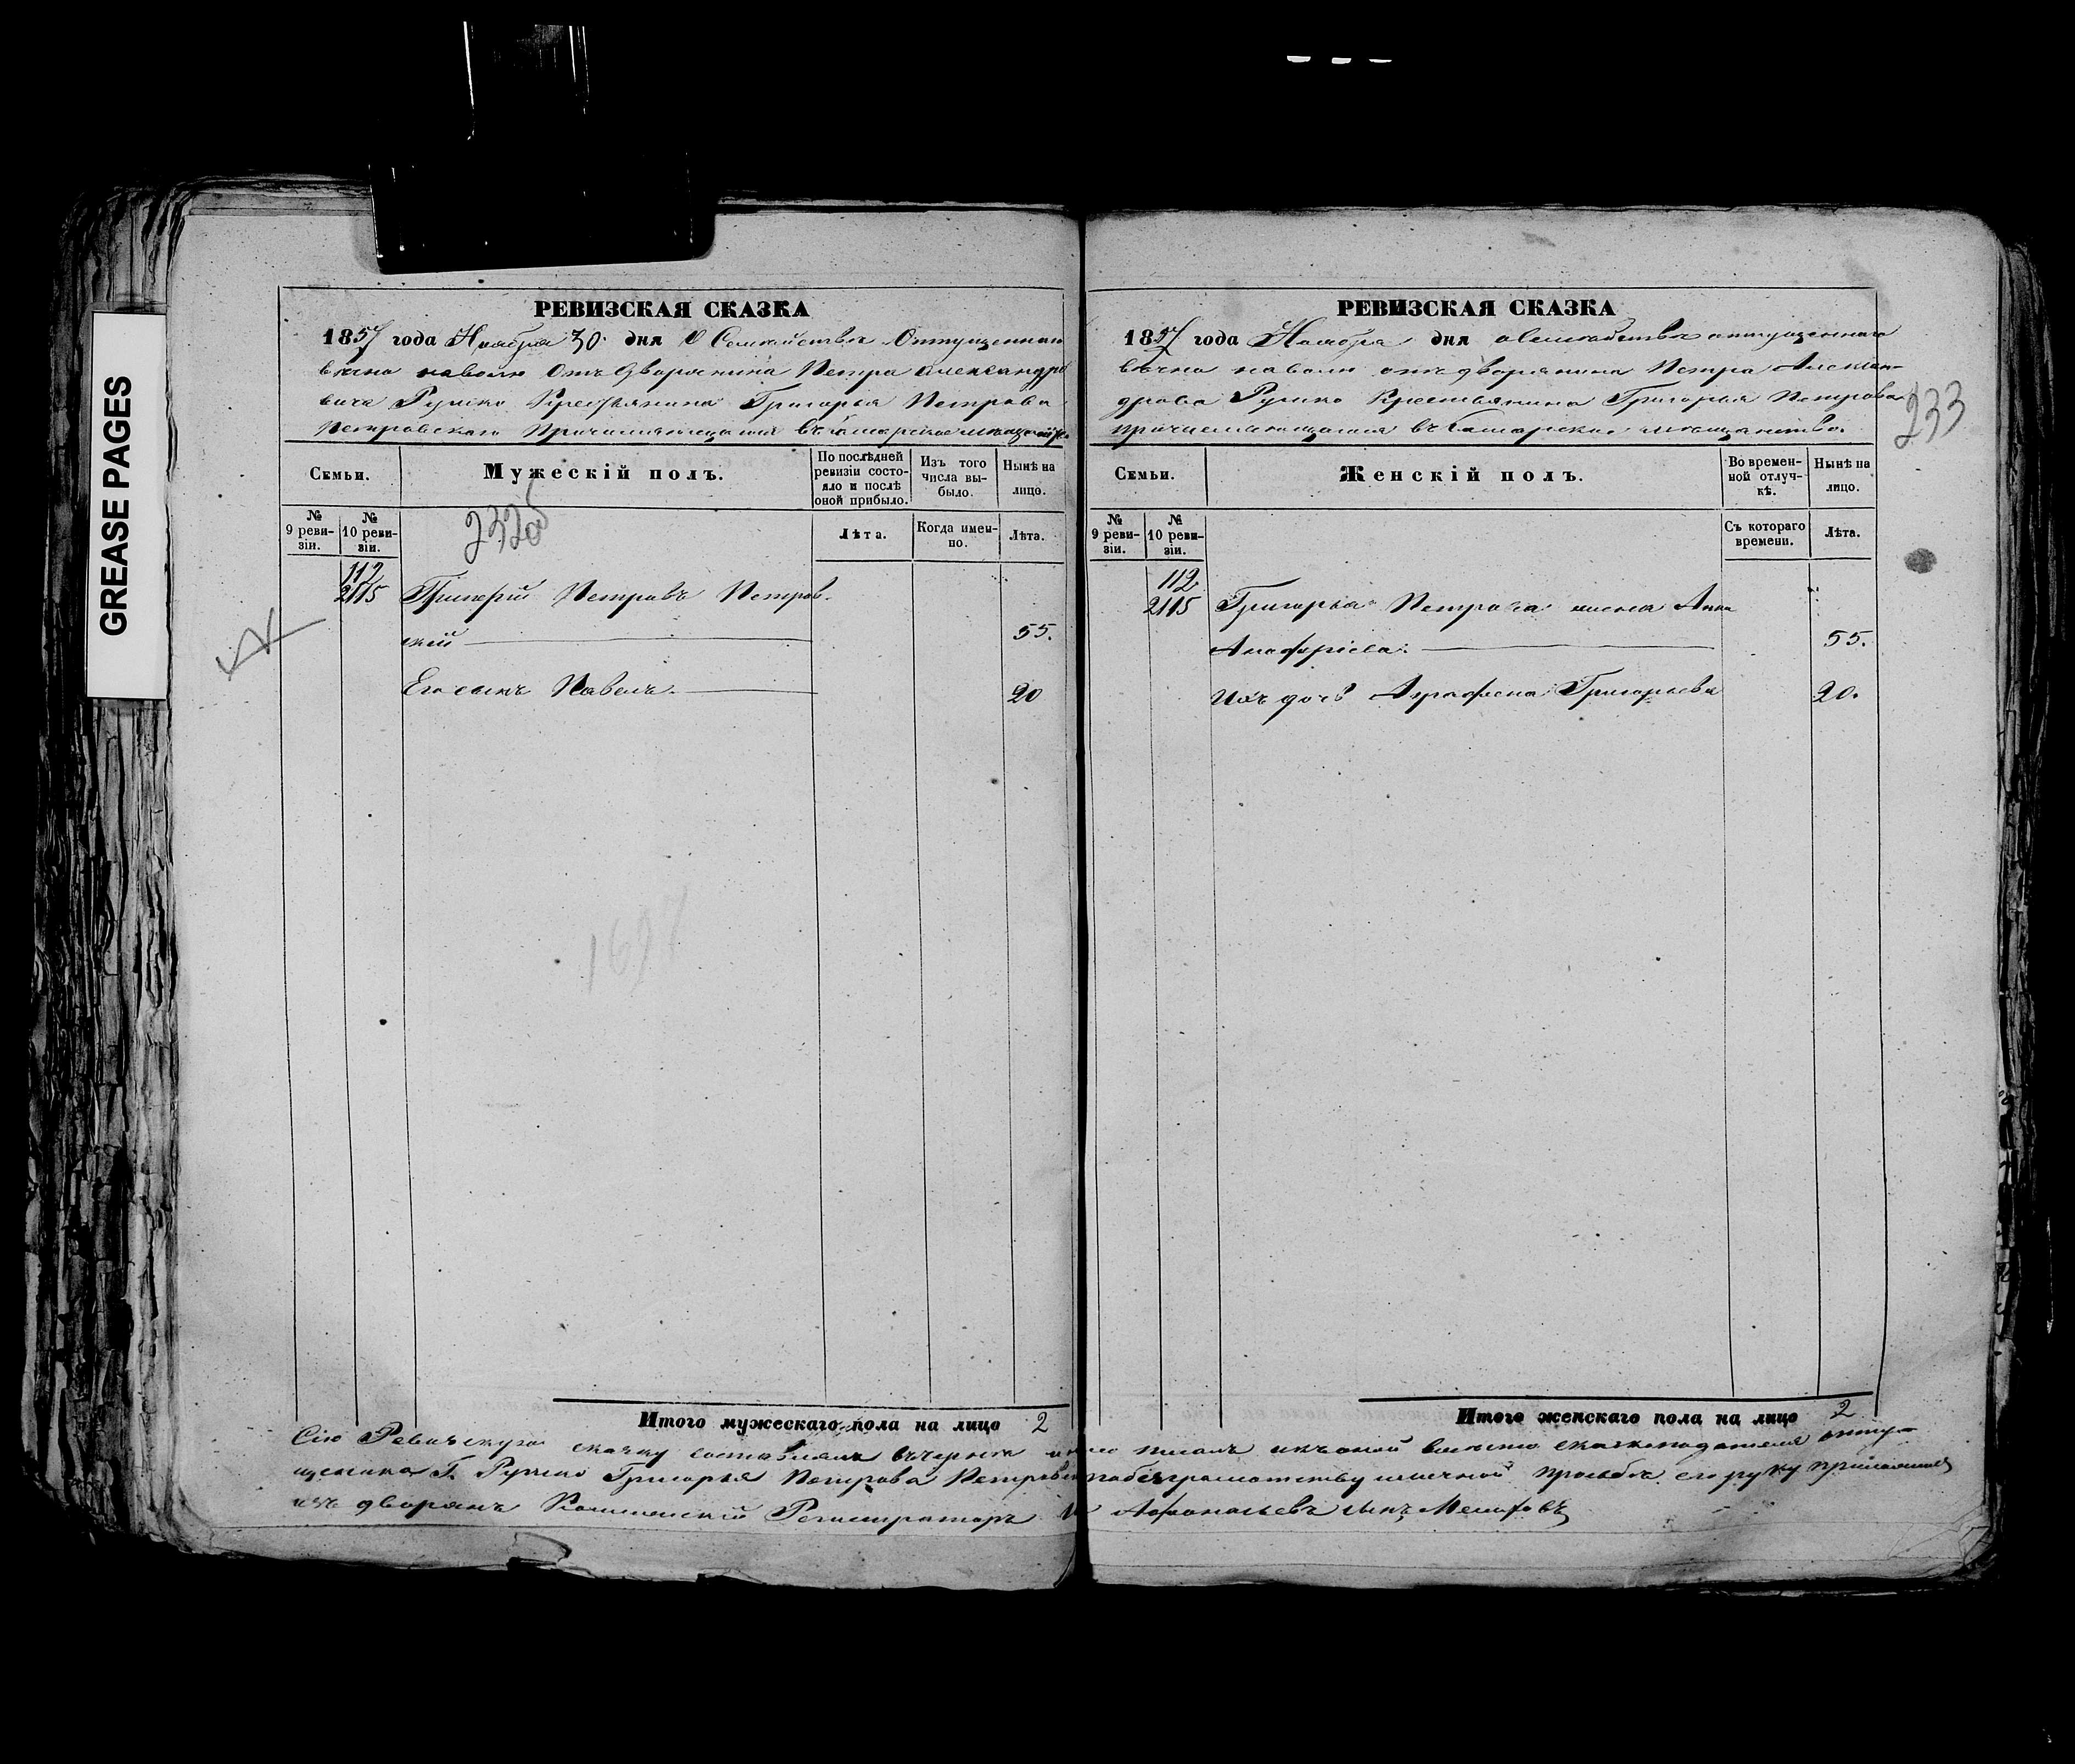 GREASE PAGES
РЕВИЗСКАЯ СКАЗКА
1857 года Ноября 30. дня О Семействѣ Отпущеннаго
вѣчно наволю Отъ Дворянина Петра Александро
вича Рушко Крестьянина Григорья Петрова
Петровскаго Причисляющагося въ Самарское мѣщанство
Семьи.
Мужескій полъ.
По послѣдней ревизіи состояло и послѣ оной прибыло.
Изъ того числа выбыло.
Нынѣ на лицо.
№ 9 ревизіи.
№ 10 ревизіи.
Лѣта.
Когда именно.
Лѣта.
232об
112
2115 Григорій Петровъ Петров-
скій 55.
Его сынъ Павелъ. 20
1697
Итого мужескаго пола на лицо 2
РЕВИЗСКАЯ СКАЗКА
1857 года Ноября дня о Семействѣ отпущеннаго
вѣчно наволю отъ дворянина Петра Алексан-
дрова Рушко Крестьянина Григорья Петрова
причисляющагося въ Самарское мѣщанство.
233
Семьи.
Женскій полъ.
Во временной отлучкѣ.
Нынѣ на лицо.
№ 9 ревизіи.
№ 10 ревизіи.
Съ котораго времени.
Лѣта.
112
2115 Григорья Петрова жена Анна
Анофріева. 55.
Ихъ дочь Аграфена Григорьева 20.
Итого женскаго пола на лицо 2
Сію Ревизскую сказку составлялъ въчернѣ писалъ икъоной вмѣсто сказкоподателя отпу-
щеника Г. Рушко Григорья Петрова Петровска побезграмотству иличной прозьбѣ его руку приложилъ
изъ дворянъ Колежскій Регистраторъ Афонасьевъ сынъ